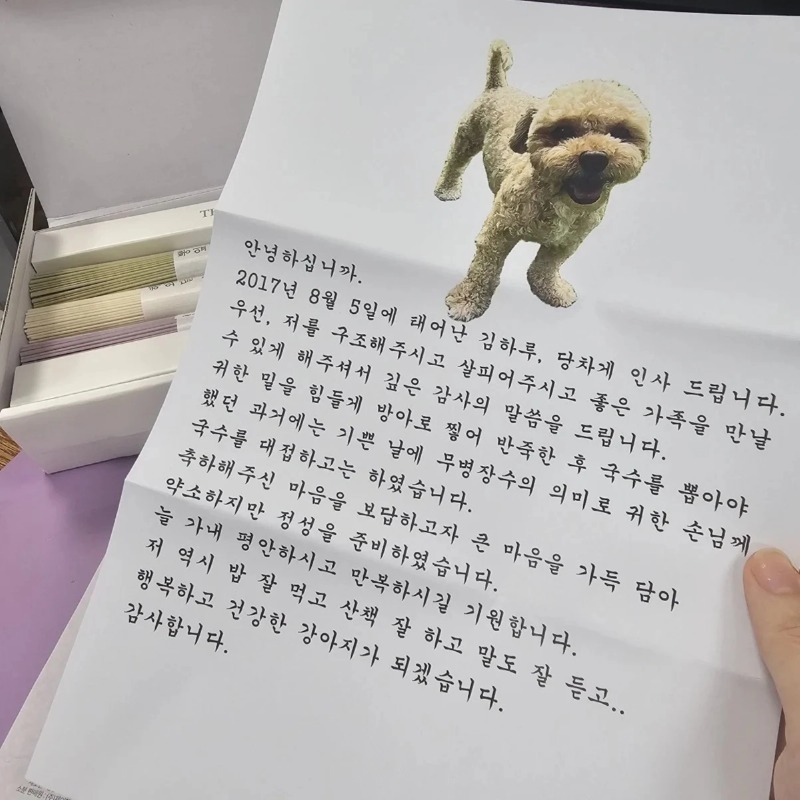 안녕하십니까.
2017년 8월 5일에 태어난 김하루, 당차게 인사 드립니다.
우선, 저를 구조해주시고 살피어주시고 좋은 가족을 만날
수 있게 해주셔서 깊은 감사의 말씀을 드립니다.
귀한 밀을 힘들게 방아로 찧어 반죽한 후 국수를 뽑아야
했던 과거에는 기쁜 날에 무병장수의 의미로 귀한 손님께
국수를 대접하고는 하였습니다.
축하해주신 마음을 보답하고자 큰 마음을 가득 담아
약소하지만 정성을 준비하였습니다.
늘 가내 평안하시고 만복하시길 기원합니다.
저 역시 밥 잘 먹고 산책 잘 하고 말도 잘 듣고..
행복하고 건강한 강아지가 되겠습니다.
감사합니다.